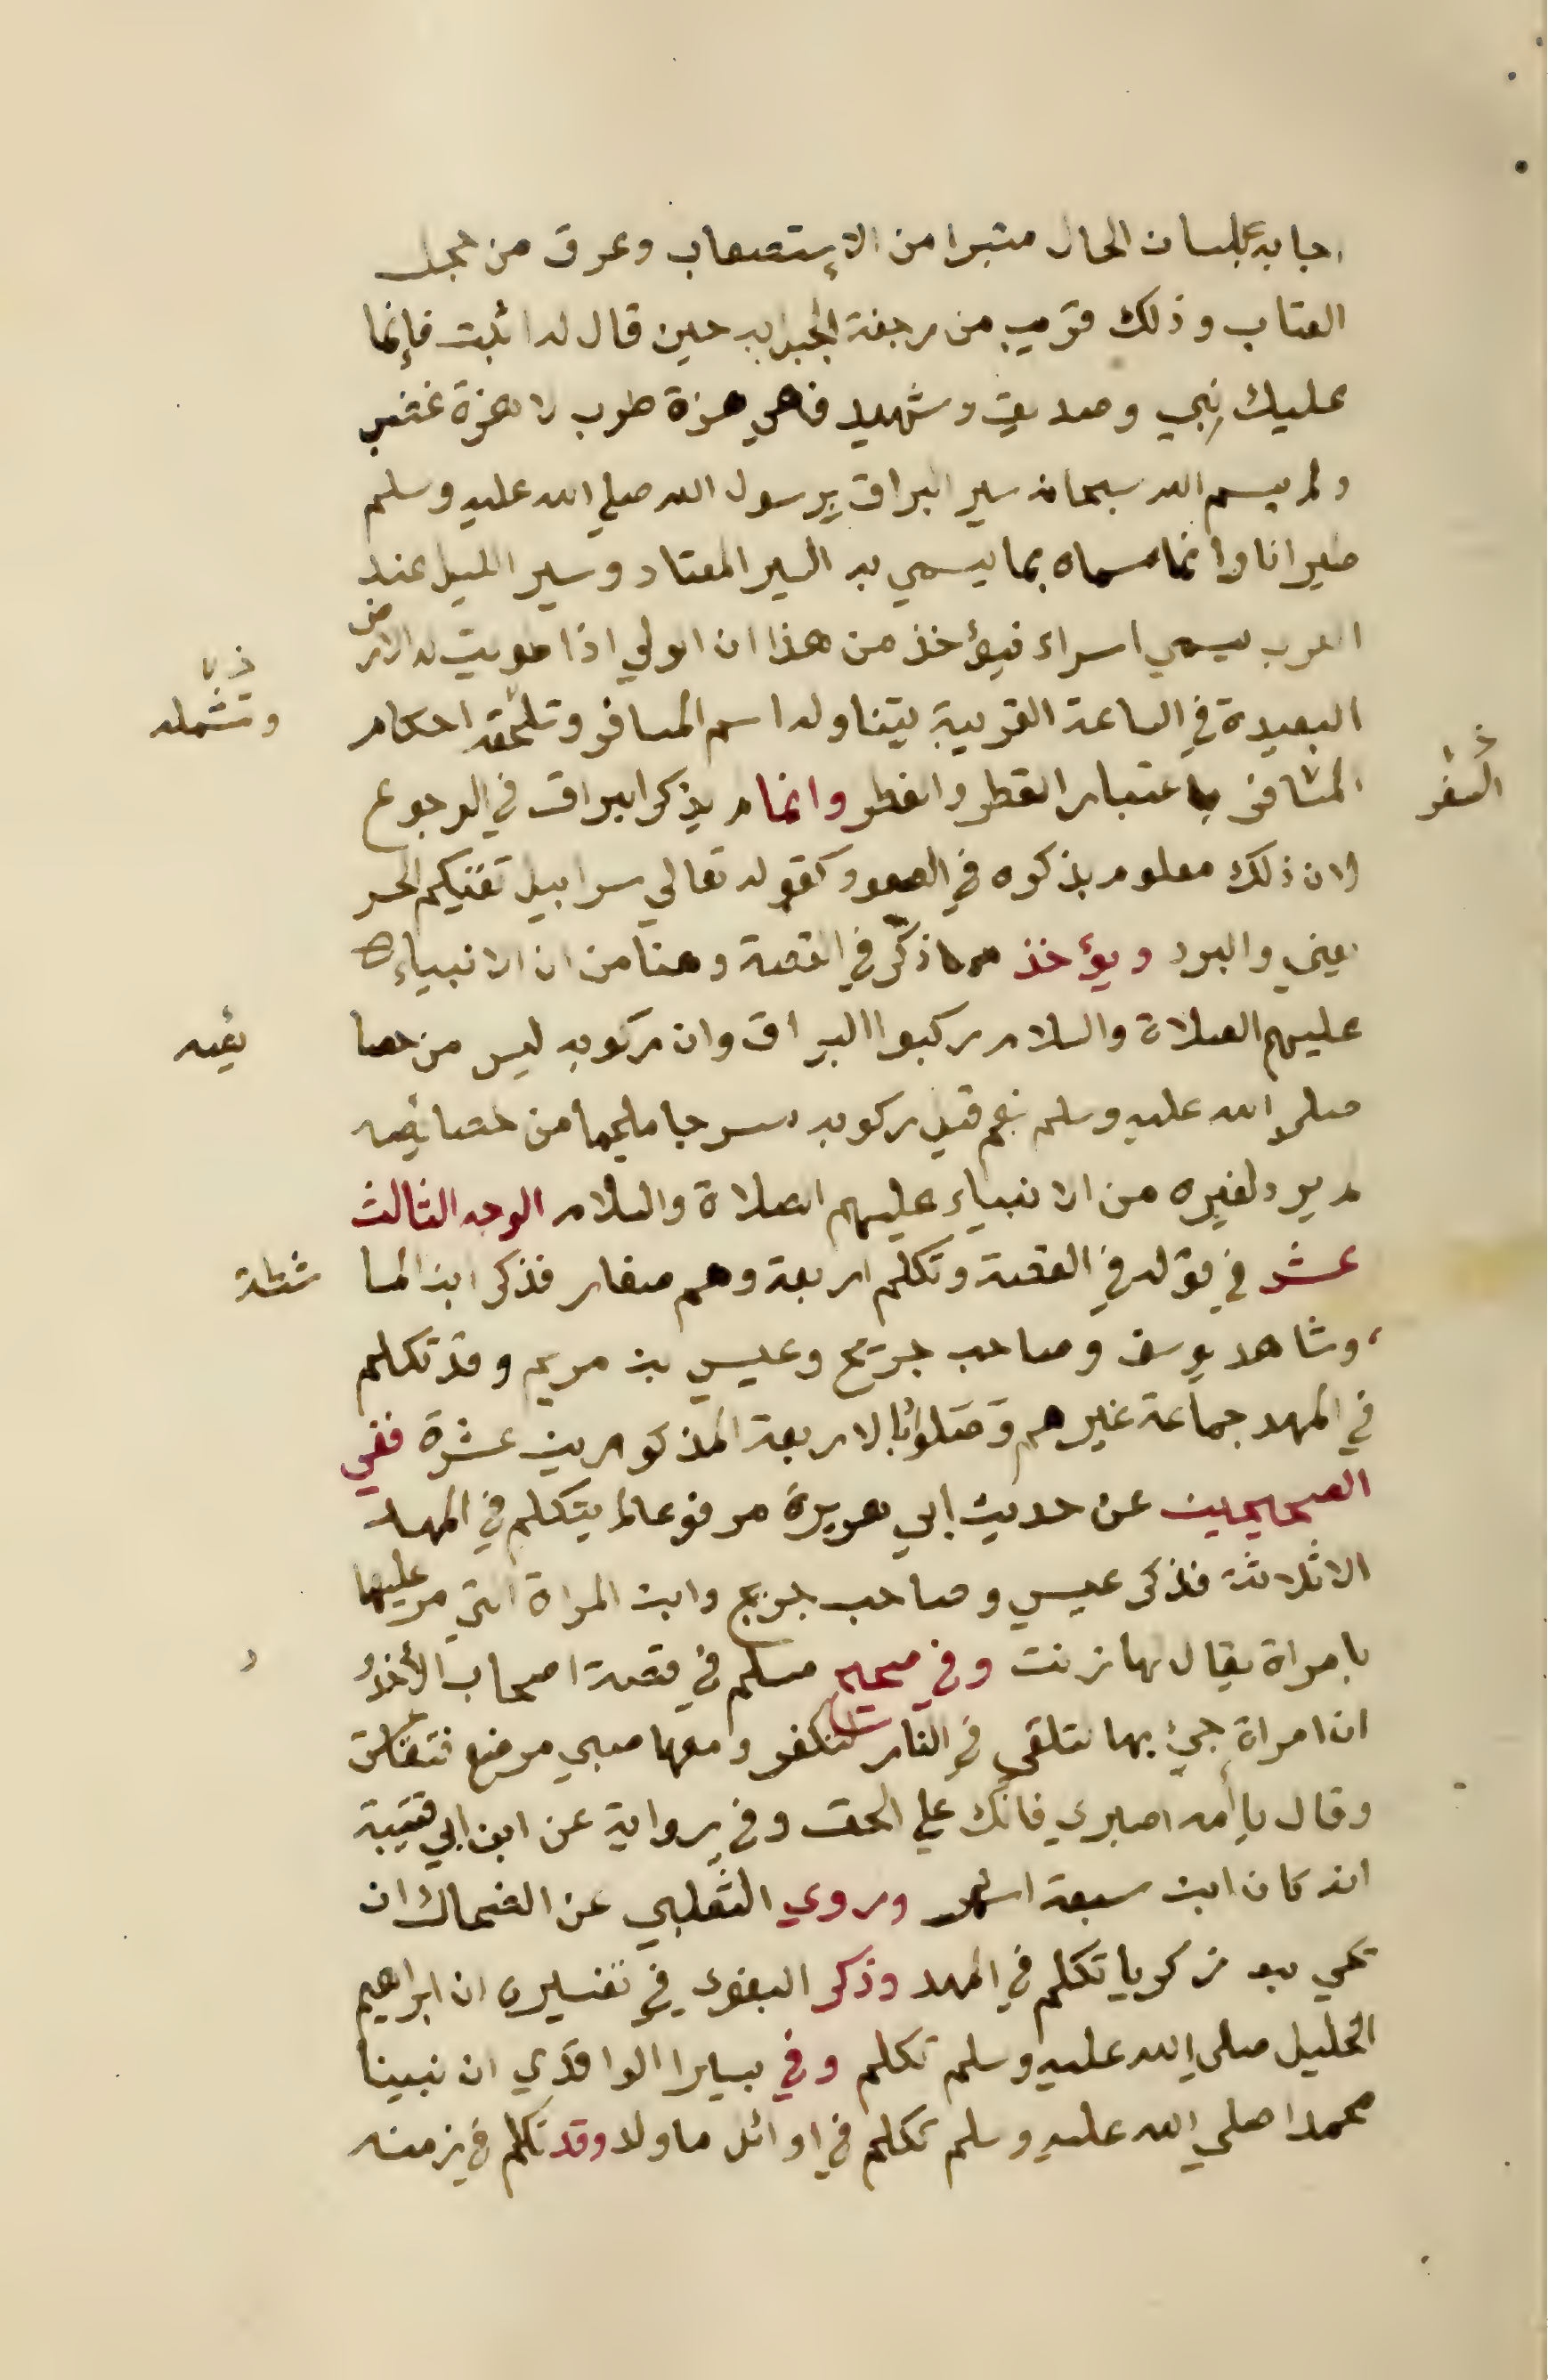 اجابه بلسان الحال متبرا من الإستصعاب وعرق من خجل
العتاب وذلك قريب من رجفة الجبل به حين قال له اثبت فإنما
عليك نبي وصديق وشهيد فهي هزة طرب لا هزة غضب
ولم يسم الله سبحانه سير البراق برسول الله صلي الله عليه وسلم
طيرانا وانما سماه بما يسمي به السير المعتاد وسير الليل عند
العرب يسمي اسراء فيؤخذ من هذا ان الولي اذا طويت له الارض
البعيدة في الساعة القريبة يتناوله اسم المسافر وتلحقه احكام
وتشمله
المسافر باعتبار القطر والفطر وانما لم يذكر البراق في الرجوع
السفر
لان ذلك معلوم بذكره في الصعود كقوله تعالي سرابيل تقيكم الحر
يعني والبرد ويؤخذ مما ذكر في القصة وهنا من ان الانبياء
عليهم الصلاة والسلام ركبوا البراق وان ركوبه ليس من خصا
يصه
صلي الله عليه وسلم نعم قيل ركوبه مسرجا ملجما من خصائصه
لم يرد لغيره من الانبياء عليهم الصلاة والسلام الوجه الثالث
عشر في قوله في القصة وتكلم اربعة وهم صغار فذكر ابن الما
شطة
وشاهد يوسف وصاحب جريج وعيسي بن مريم وقد تكلم
في المهد جماعة غيرهم وصلوا بالاربعة المذكورين عشرة ففي
الصحيحين عن حديث ابي هريرة مرفوعا لم يتكلم في المهد
الا ثلاثة فذكر عيسي وصاحب جريج وابن المراة التي مر عليها
بامراة يقال لها زنت وفي صحيح مسلم في قصة اصحاب الأخدو
د
ان امراة جيئ بها لتلقي في النار لتكفر ومعها صبي مرضع فتقاعست
وقال يا أمه اصبري فانك علي الحق وفي رواية عن ابن ابي قتيبة
انه كان ابن سبعة اشهر وروي الثعلبي عن الضحاك ان
يحي بن زكريا تكلم في المهد وذكر البغوي في تفسيره ان ابراهيم
الخليل صلي الله عليه وسلم تكلم وفي سير الواقدي ان نبينا
محمدا صلي الله عليه وسلم تكلم في اوائل ما ولد وقد تكلم في زمنه